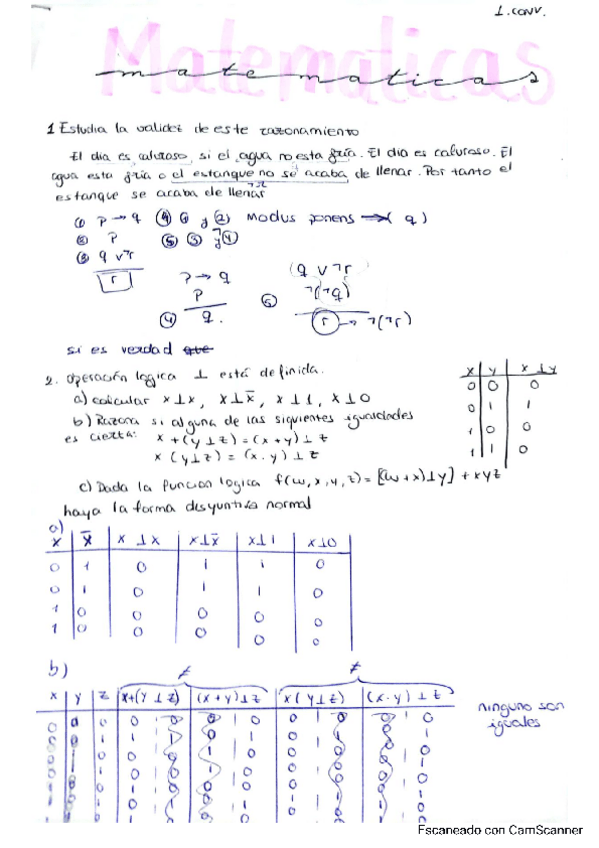 1. conv.
Matematicas
matematicas
1 Estudia la validez de este razonamiento
El dia es caluroso, si el agua no esta fría. El dia es caluroso. El
agua esta fría o el estanque no se acaba de llenar. Por tanto el
estanque se acaba de llenar
① p → q ④ ① y ② Modus ponens → q)
② p ⑤ ③ y ④
③ q v ¬r
r
p → q
p
④ q.
(q v ¬r)
¬(¬q)
⑤ r → ¬(¬r)
si es verdad que
2. Operación logica ⊥ está definida.
a) calcular x⊥x, x⊥x̅, x⊥1, x⊥0
b) Razona si alguna de las siguientes igualdades
es cierta: x+(y⊥z)=(x+y)⊥z
x(y⊥z) = (x·y)⊥z
x y x⊥y
0 0 0
0 1 1
1 0 0
1 1 0
c) Dada la funcion logica f(w,x,y,z)=[(w+x)⊥y] + xyz
haya la forma disyuntiva normal
a)
x x̅ x⊥x x⊥x̅ x⊥1 x⊥0
0 1 0 1 1 0
0 1 0 1 1 0
1 0 0 0 0 0
1 0 0 0 0 0
b) ≠ ≠
x y z x+(y⊥z) (x+y)⊥z x(y⊥z) (x·y)⊥z
ninguno son
iguales
Escaneado con CamScanner